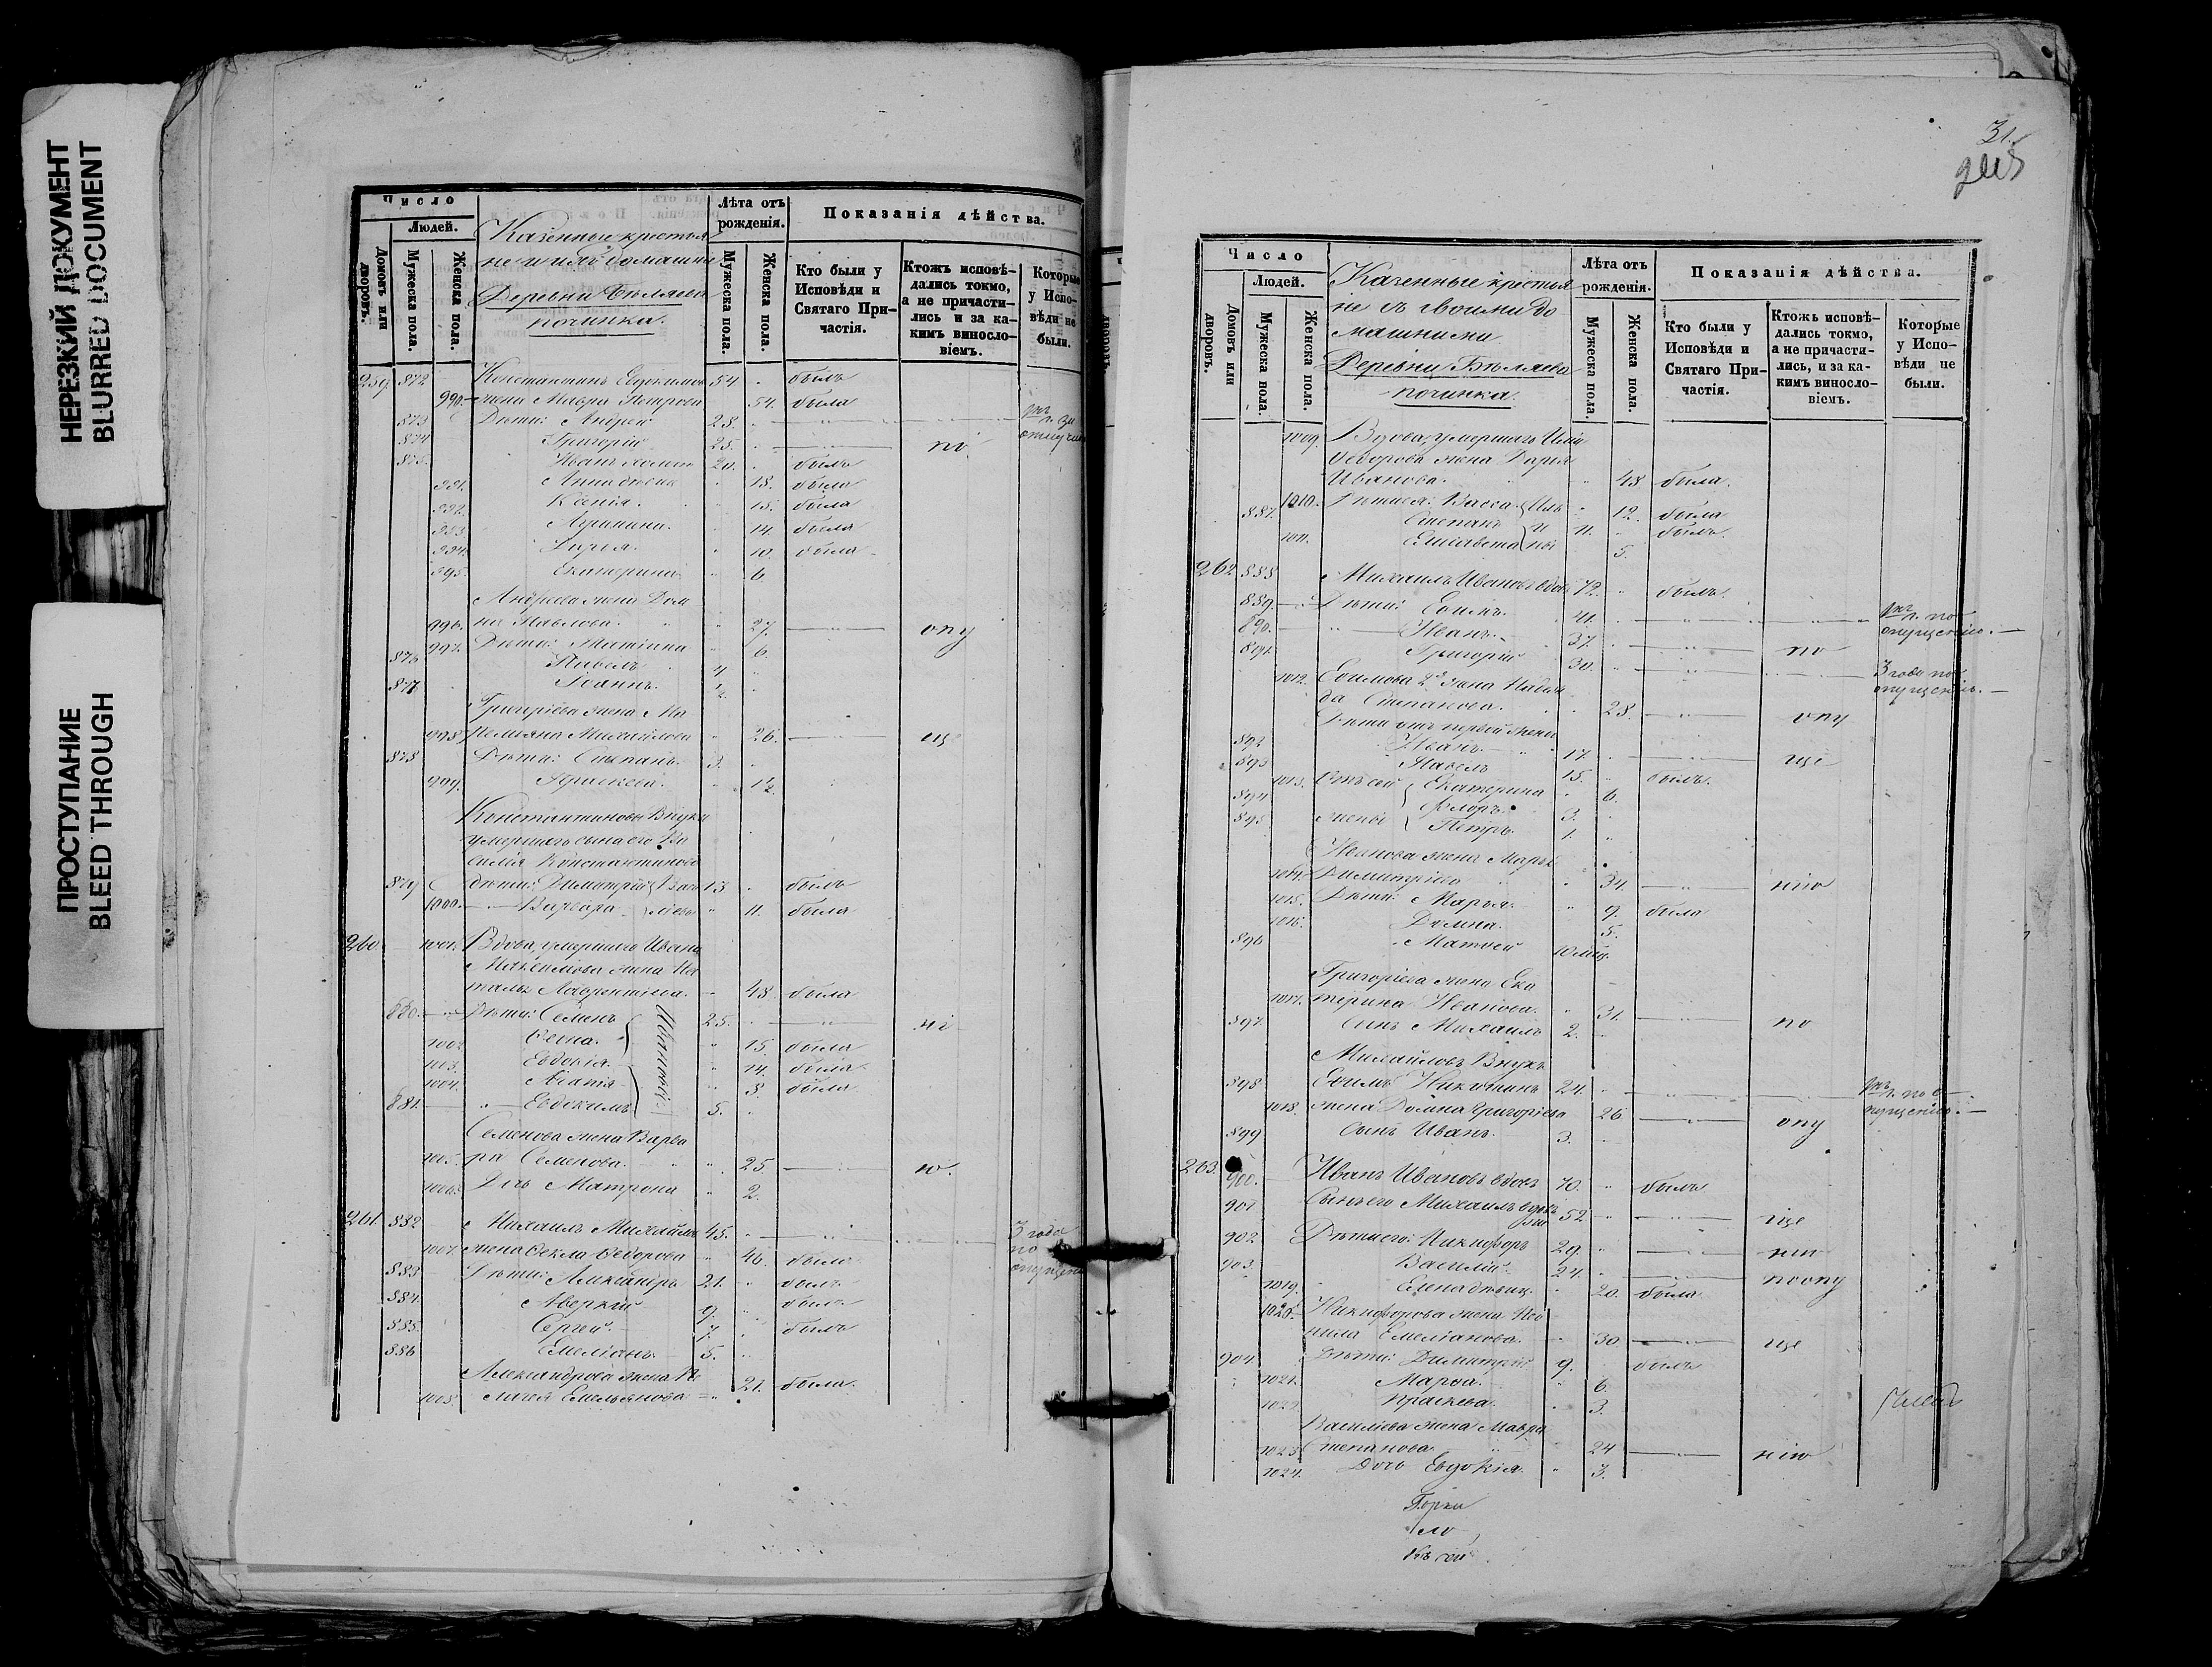 НЕРЕЗКИЙ ДОКУМЕНТ
BLURRED DOCUMENT
ПРОСТУПАНИЕ
BLEED THROUGH
Число
Людей.
Домовъ или дворовъ.
Мужеска пола.
Женска пола.
Казенные крестья
не и ихъ домашни
Деревни Бѣляева
починка.
Лѣта отъ рожденія.
Мужеска пола.
Женска пола.
Показанія дѣйства.
Кто были у Исповѣди и Святаго Причастія.
Ктожъ исповѣдались токмо, а не причастились и за какимъ винословіемъ.
Которые у Исповѣди не были.
259. 872 Константинъ Евдокимов 54 былъ
990. жена Мавра Петрова 54. была
873 Дѣти: Андрей 28.
874 Григорій 25. по
875. Иванъ холост 20. былъ
991. Анна дѣвка 18. была
992. Ксенія. 15. была
993. 14. была
994. Дарья. 10. была
995. Екатерина 6
Андреева жена Дом
996. на Павлова. 27. опу
997. Дѣти: 6.
876 Павелъ 4
877 Іоаннъ. 1/2
Григорьева жена
998. Михайлова 26. ще
878 Дѣти: Степанъ. 3.
999. Праскева. 1/2
Константиновы Внуки
умершаго сына его Ва
силія Константинова
879 дѣти: Димитрій Васи 13 былъ
1000. Варвара льевы 11. была
260. 1001. Вдова умершаго Ивана
жена На
талья Лаврентіева. 48 была
880. Дѣти: Семенъ 25. ні
1002 Ѳекла. 15. была
1003. Евдокія. Ивановы 14. была
1004. Агатія 8. была
881. Евдокимъ 5.
Семенова жена Варва
1005. ра Семенова. 25. ю.
1006. Дочь Матрона 2.
261. 882 Михаилъ Михайлов 45. 3 года по
1007. жена Ѳекла Ѳедорова 46. была
883 Дѣти: Александръ 21. былъ
884. Аверкій 9. былъ
885. Сергей. 7. былъ
886 Емеліанъ. 5.
Александрова жена Пе
1008. лагея Емельянова 21. была.
31.
Число
Людей.
Домовъ или дворовъ.
Мужеска пола.
Женска пола.
Казенные крестья
не съ своими до
машними
Деревни Бѣляева
починка.
Лѣта отъ рожденія.
Мужеска пола.
Женска пола.
Показанія дѣйства.
Кто были у Исповѣди и Святаго Причастія.
Ктожъ исповѣдались токмо, а не причастились, и за какимъ винословіемъ.
Которые у Исповѣди не были.
1009. Вдова, умершаго
Ѳедорова жена Дарья
Иванова. 48 была.
1010. Дѣти ея: Васса 12. была
887. Степанъ 11. былъ.
1011. Елисавета 5.
262. 888 Михаилъ Ивановъ вдов 72. былъ.
889. Дѣти: Ефимъ. 41. по опущенію.
890. Иванъ. 37. по
891. Григорій 30. 3 года по опущенію.
1012. Ефимова 2я жена Надеж
да Степанова. 28. опу
Дѣти отъ первой жены
892 Иванъ 17. ще
893 Павелъ 15. былъ.
1013. Отъ сей Екатерина 6.
894 Флоръ 3.
895 жены Петръ 1.
Иванова жена Марья
1014. Димитріева 34. нію
1015. Дѣти: Марья. 9. была
1016. Домна. 5.
896 Матвей 10 мѣц.
Григорьева жена Ека
1017. терина Иванова. 31. по
897. Сынъ Михаилъ 2.
Михайловъ Внукъ
898 Ефимъ Никитинъ 24. по о пущенію.
1018. жена Домна Григорьева 26 опу
899 Сынъ Иванъ. 3.
263. 900. Иванъ Ивановъ вдов 70. былъ
901 Сынъ его Михаилъ вдов 52. ще
902 Дѣти его: Никифоръ 29. нію
903 Василій. 24. по опу
1019. Елена дѣвиц. 20. была
1020. Никифорова жена Нео
нила Емеліанова. 30. ще
904 Дѣти: Димитрій 9. былъ
1021. Марфа. 6.
1022. Праскева 3.
Васильева жена Мавра
1023 Степанова 24 нію
1024. Дочь Евдокія. 3.